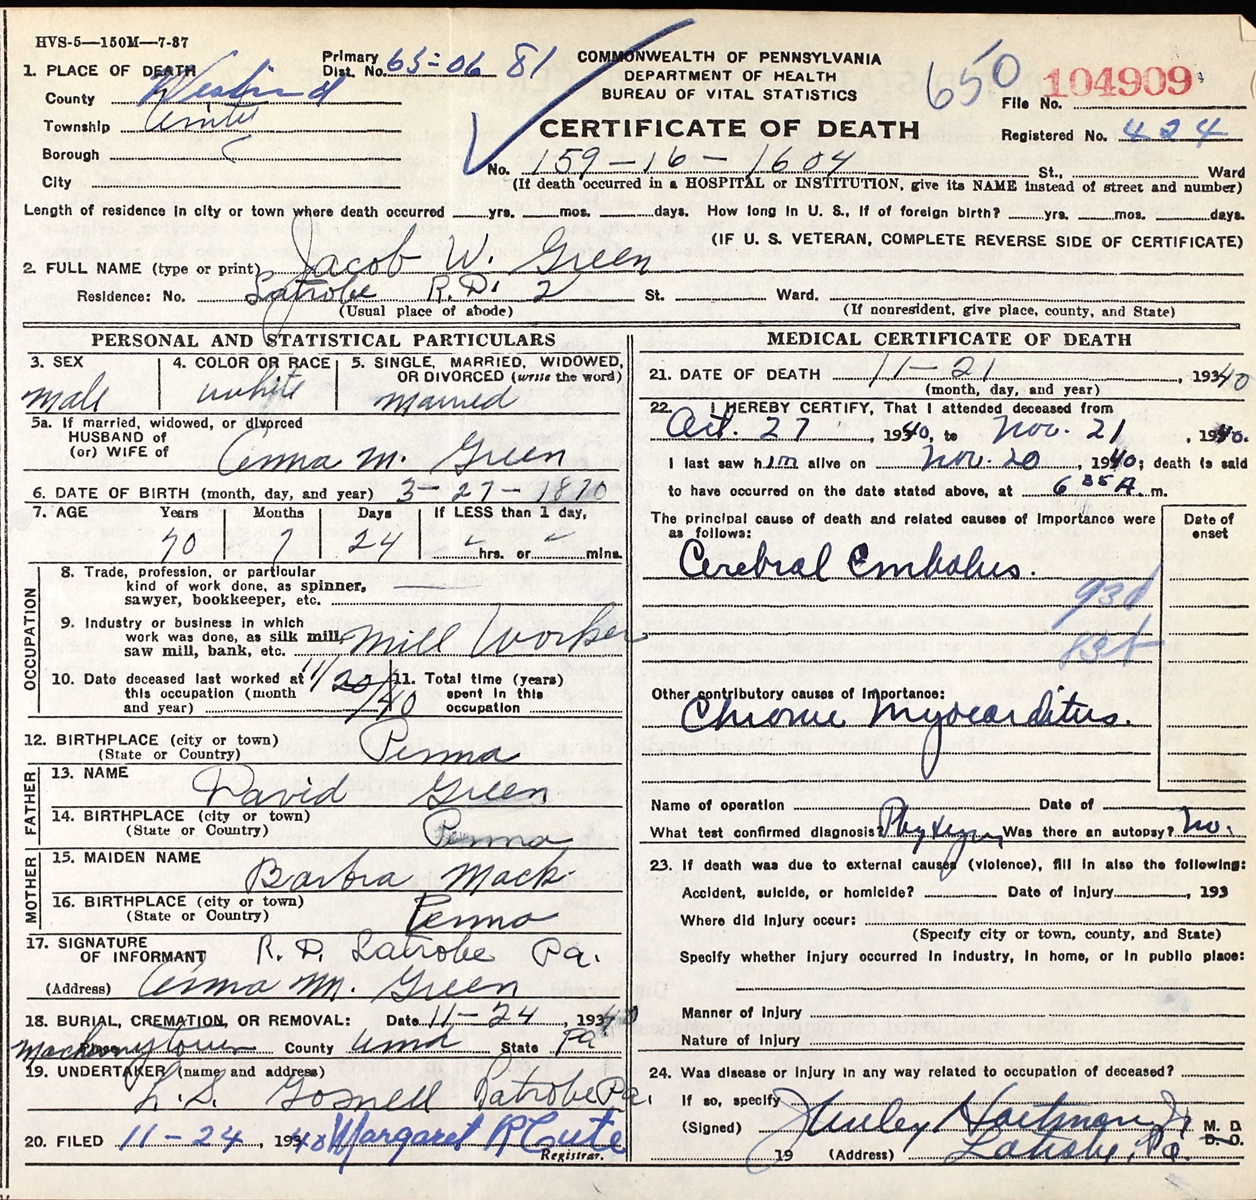 HVS-5—150M—7-37
1. PLACE OF DEATH
Primary Dist. No. 65-06 81
COMMONWEALTH OF PENNSYLVANIA
DEPARTMENT OF HEALTH
BUREAU OF VITAL STATISTICS
650
File No. 104909
County
Township Unity
Borough
City
CERTIFICATE OF DEATH
Registered No. 424
No. 159-16-1604 St., Ward
(If death occurred in a HOSPITAL or INSTITUTION, give its NAME instead of street and number)
Length of residence in city or town where death occurred yrs. mos. days. How long in U. S., if of foreign birth? yrs. mos. days.
(IF U. S. VETERAN, COMPLETE REVERSE SIDE OF CERTIFICATE)
2. FULL NAME (type or print) Jacob W. Green
Residence: No. Latrobe R.D. 2 St. Ward.
(Usual place of abode) (If nonresident, give place, county, and State)
PERSONAL AND STATISTICAL PARTICULARS
3. SEX male
4. COLOR OR RACE white
5. SINGLE, MARRIED, WIDOWED, OR DIVORCED (write the word) married
5a. If married, widowed, or divorced
HUSBAND of
(or) WIFE of Anna M. Green
6. DATE OF BIRTH (month, day, and year) 3-27-1870
7. AGE Years Months Days If LESS than 1 day,
70 7 24 hrs. or mins.
OCCUPATION
8. Trade, profession, or particular
kind of work done, as spinner,
sawyer, bookkeeper, etc.
9. Industry or business in which
work was done, as silk mill,
saw mill, bank, etc. Mill Worker
10. Date deceased last worked at
this occupation (month
and year) 11/20/40
11. Total time (years)
spent in this
occupation
12. BIRTHPLACE (city or town)
(State or Country) Penna
FATHER
13. NAME David Green
14. BIRTHPLACE (city or town)
(State or Country) Penna
MOTHER
15. MAIDEN NAME Barbra Mack
16. BIRTHPLACE (city or town)
(State or Country) Penna
17. SIGNATURE
OF INFORMANT R. D. Latrobe Pa.
(Address) Anna M. Green
18. BURIAL, CREMATION, OR REMOVAL: Date 11-24, 19340
Place County State Pa
19. UNDERTAKER (name and address)
L.S. Gosnell Latrobe Pa.
20. FILED 11-24, 19340 Margaret R
Registrar.
MEDICAL CERTIFICATE OF DEATH
21. DATE OF DEATH 11-21, 19340
(month, day, and year)
22. I HEREBY CERTIFY, That I attended deceased from
Oct. 27, 1940, to Nov. 21, 1940.
I last saw him alive on Nov. 20, 1940; death is said
to have occurred on the date stated above, at 6 35 A. m.
The principal cause of death and related causes of importance were
as follows:
Date of
onset
Cerebral Embolus.
93d
Other contributory causes of importance:
Chronic Myocarditus.
Name of operation Date of
What test confirmed diagnosis? Was there an autopsy? No.
23. If death was due to external causes (violence), fill in also the following:
Accident, suicide, or homicide? Date of injury, 193
Where did injury occur:
(Specify city or town, county, and State)
Specify whether injury occurred in industry, in home, or in public place:
Manner of Injury
Nature of Injury
24. Was disease or injury in any way related to occupation of deceased?
If so, specify
(Signed) Hartman Jr M. D.
D. O.
19 (Address) Latrobe, Pa.